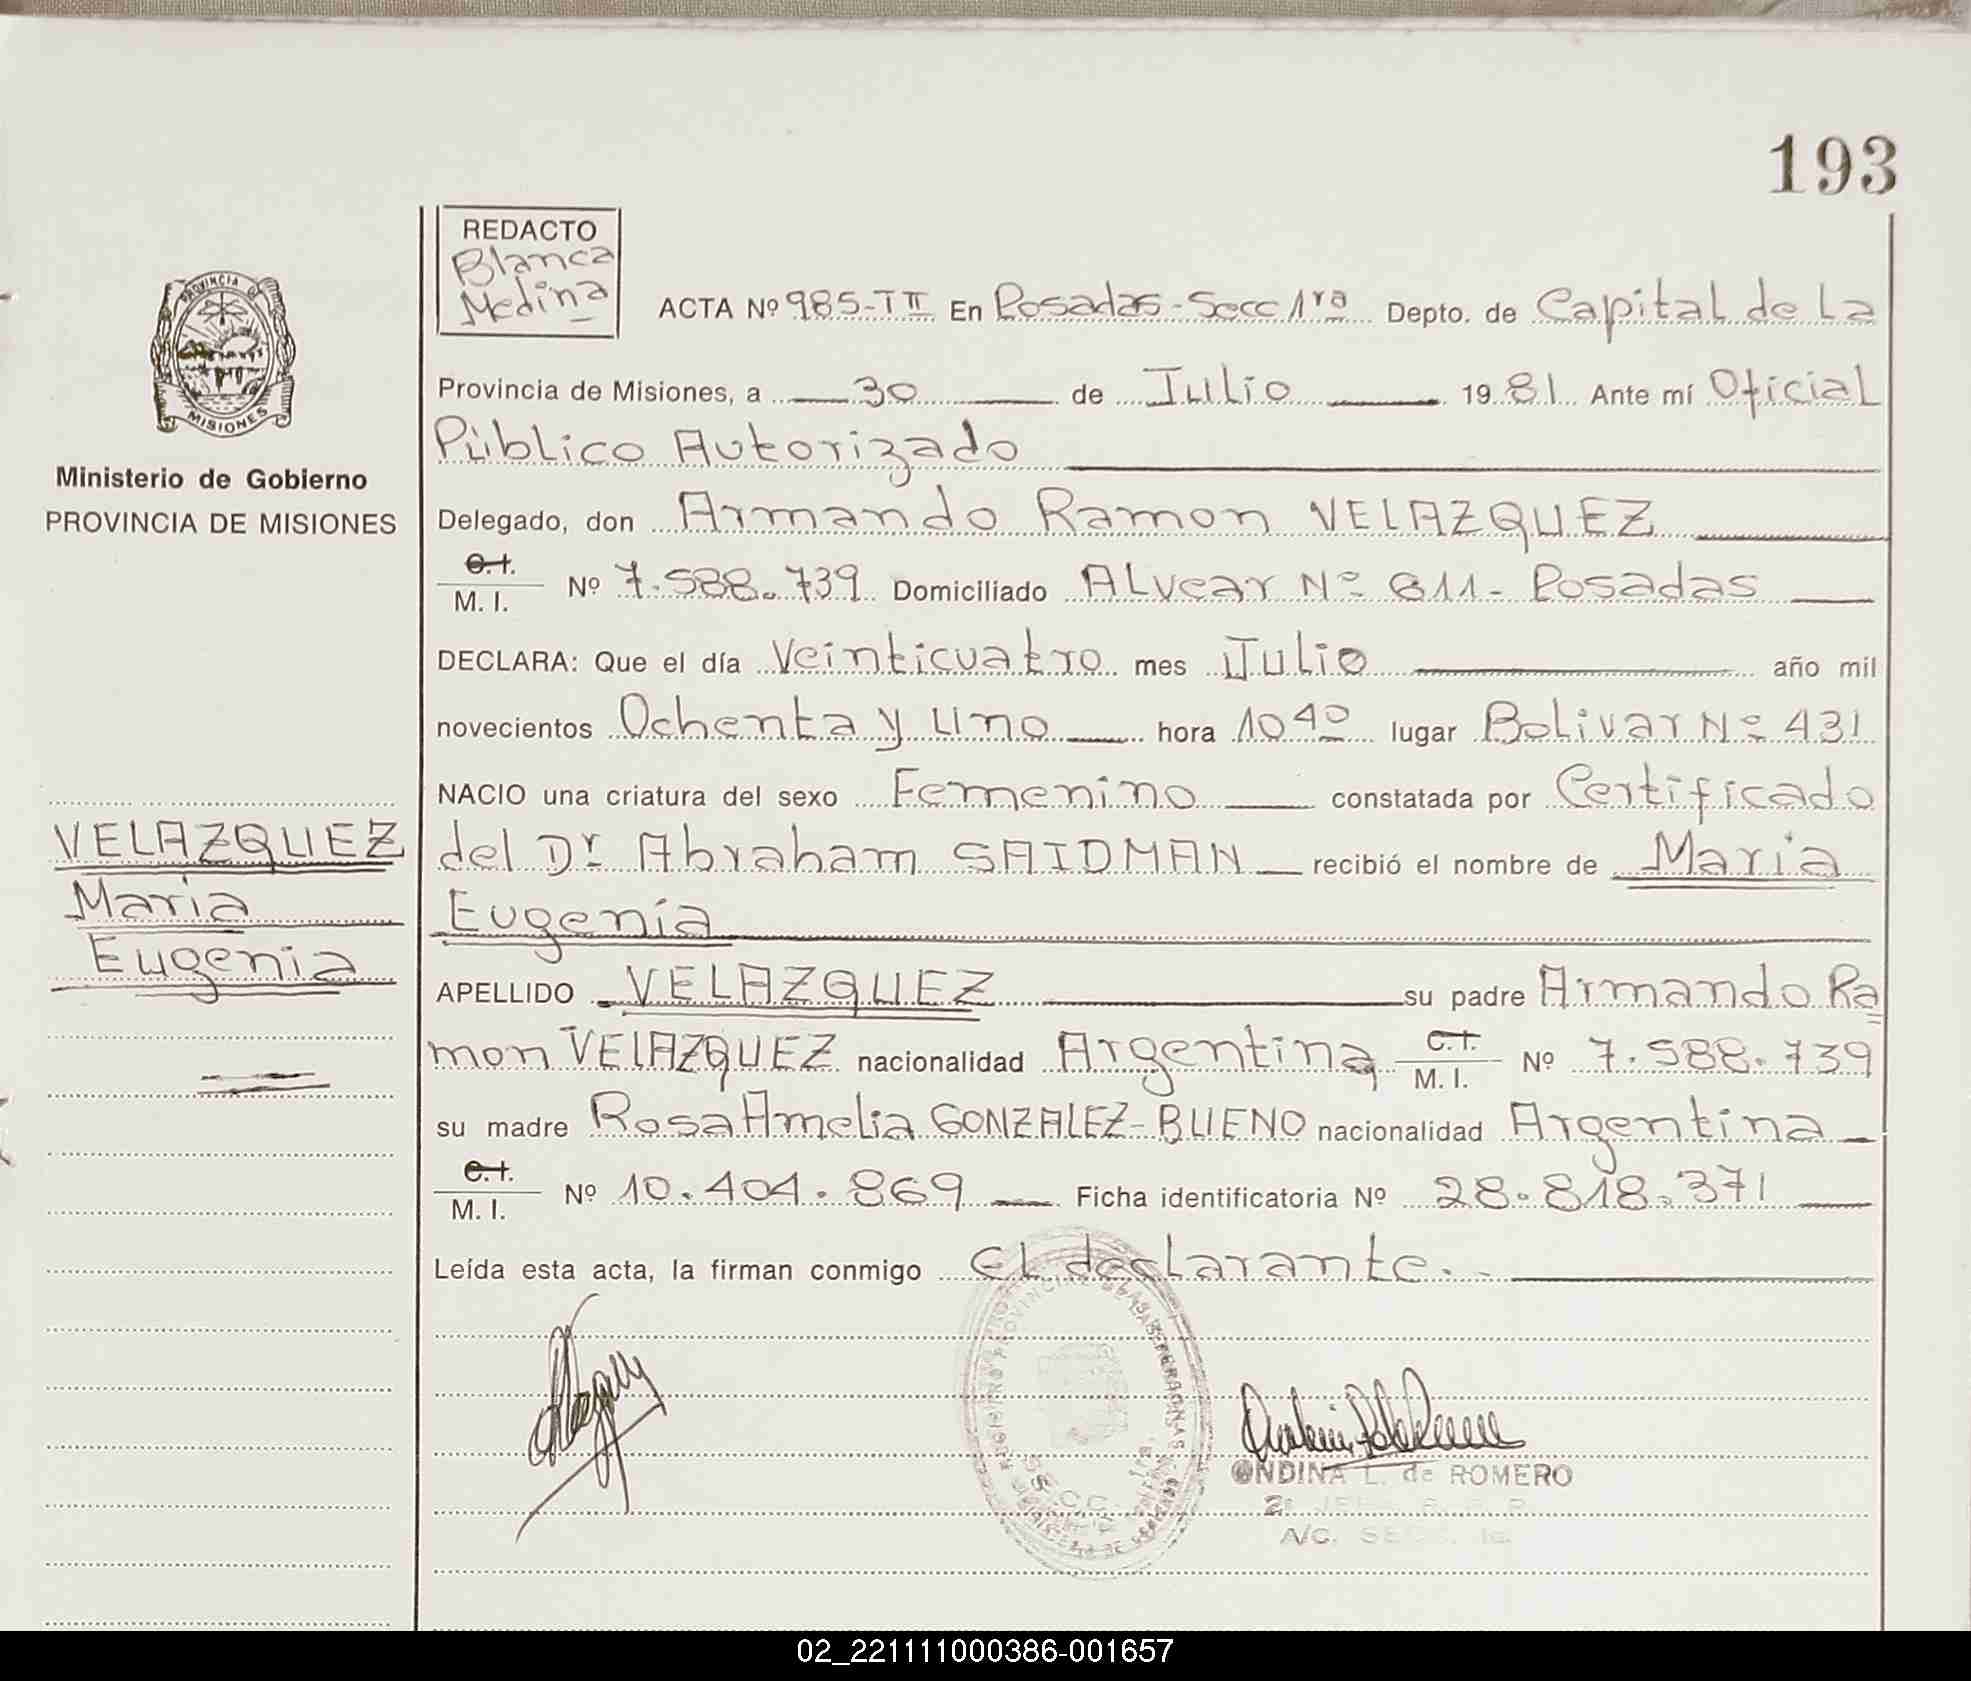 193
REDACTO
Blanca
Medina
ACTA Nº 985-TII En Posadas-Secc 1ra Depto. de Capital de La
Provincia de Misiones, a 30 de Julio 1981 Ante mí Oficial
Público Autorizado
Delegado, don Armando Ramon VELAZQUEZ
C.I.
M. I. Nº 7.588.739 Domiciliado Alvear Nº 611- Posadas
DECLARA: Que el día Veinticuatro mes Julio año mil
novecientos Ochenta y Uno hora 10 40 lugar Bolivar Nº 431
NACIO una criatura del sexo Femenino constatada por Certificado
del Dr Abraham SAIDMAN recibió el nombre de Maria
Eugenia
APELLIDO VELAZQUEZ su padre Armando Ra
mon VELAZQUEZ nacionalidad Argentina C.I.
M. I. Nº 7.588.739
su madre Rosa Amelia GONZALEZ-BUENO nacionalidad Argentina
C.I.
M. I. Nº 10.404.869 Ficha identificatoria Nº 28.818.371
Leída esta acta, la firman conmigo el declarante.
PROVINCIA DE
MISIONES
Ministerio de Gobierno
PROVINCIA DE MISIONES
VELAZQUEZ
Maria
Eugenia
ONDINA L. de ROMERO
A/C. SECC. 1a.
02_221111000386-001657